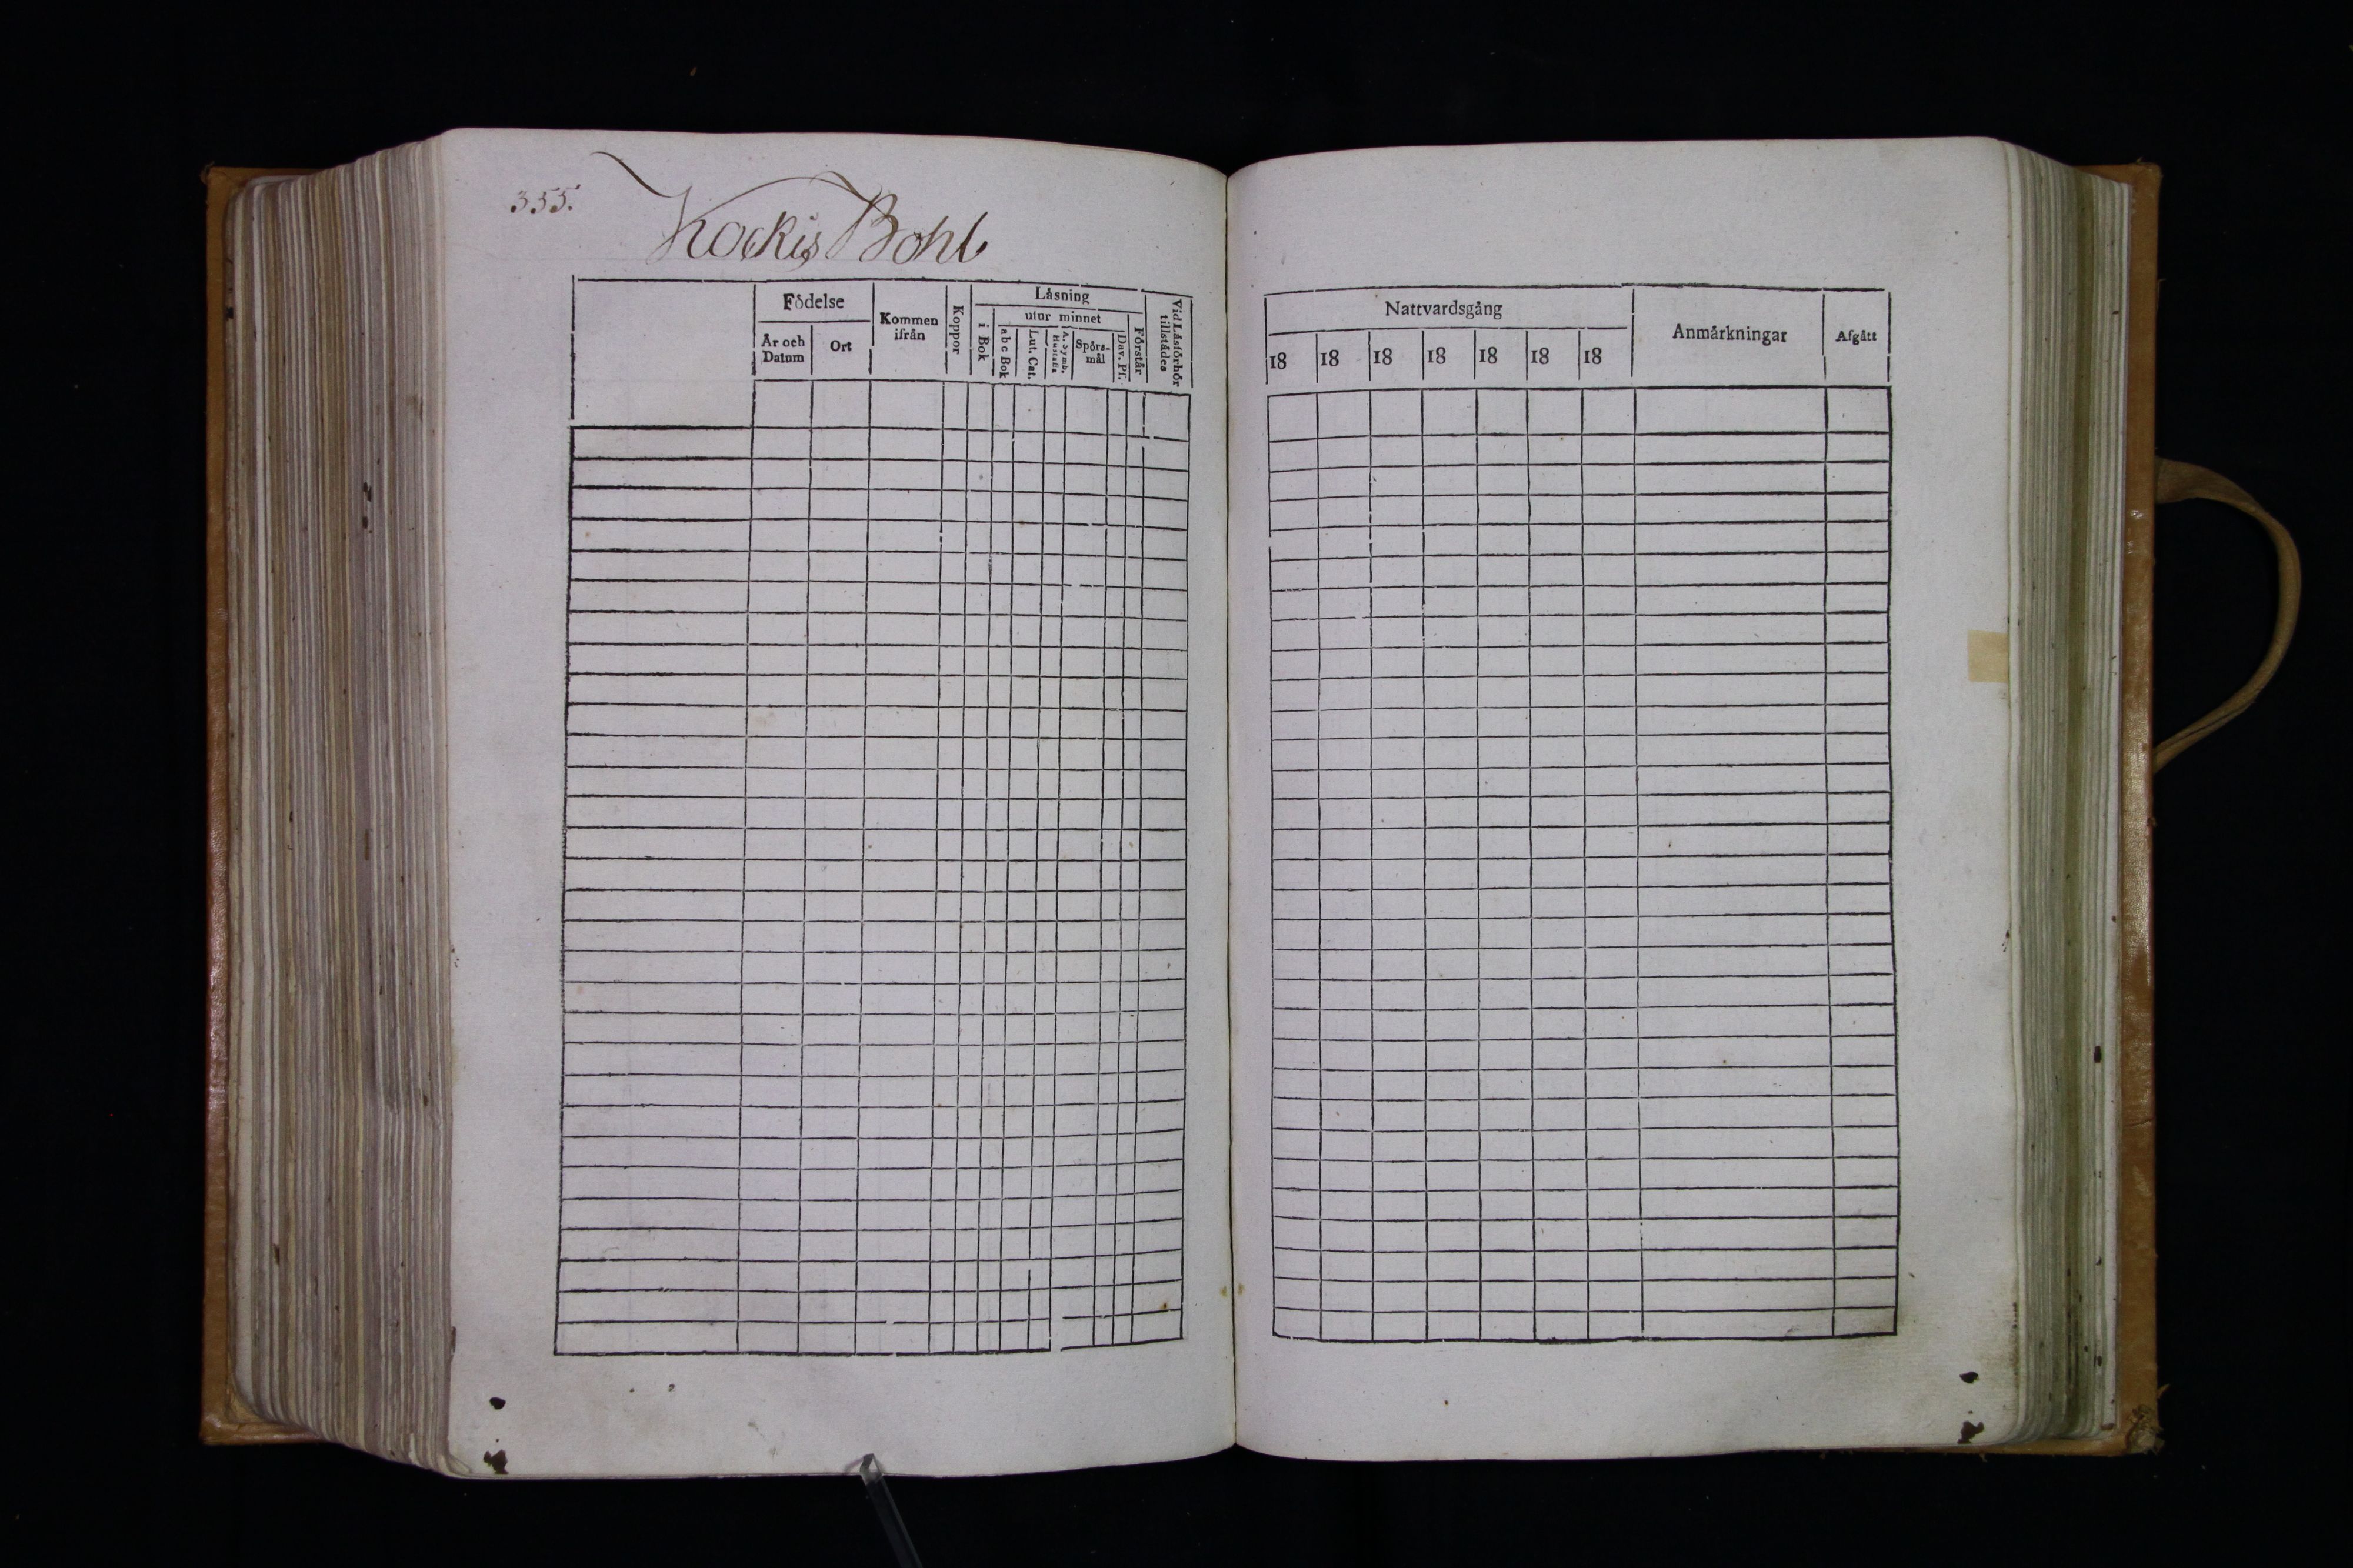 355.
Kockis Bohl
Födelse
År och Datum
Ort
Kommen ifrån
Koppor
Läsning
i Bok
utur minnet
a b c Bok
Lut. Cat.
Spörs-mål
Dav. Ps.
Förstår
Vid Läsförhör tillstädes
Nattvardsgång
18 18 18 18 18 18 18
Anmärkningar
Afgått